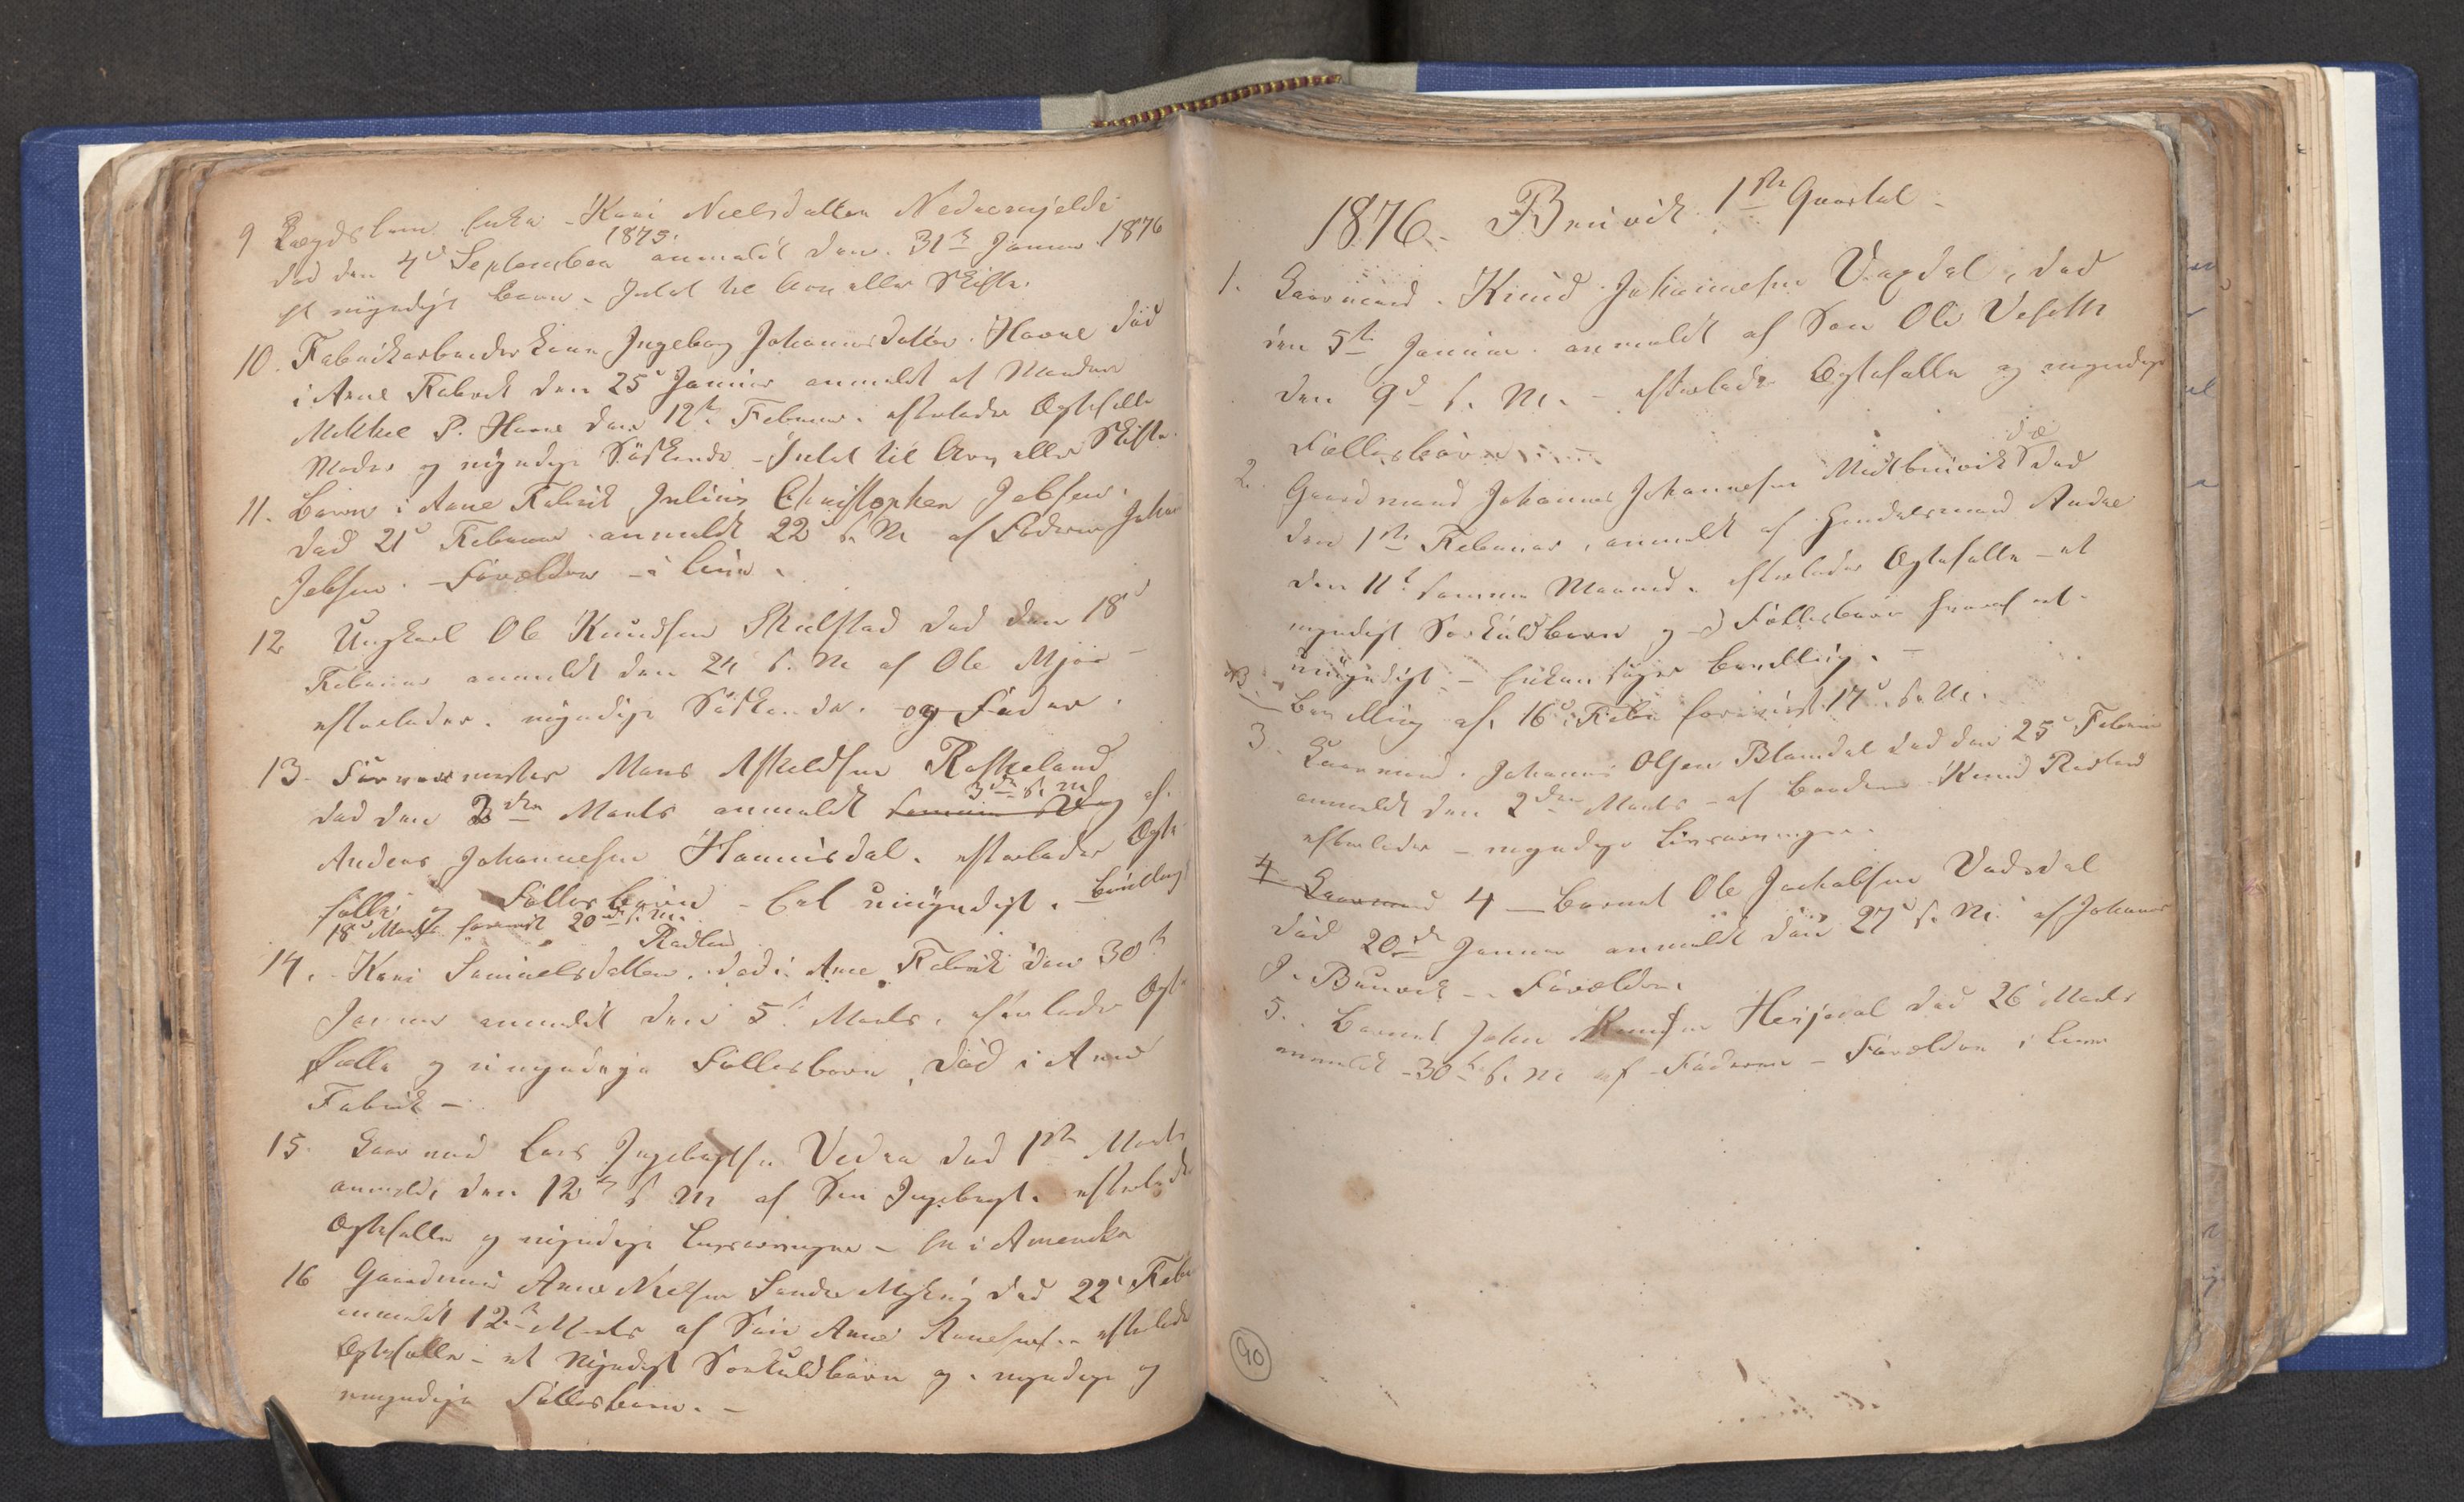 9 Lægdslem Enke Kari Nielsdatter Nedremjelde
1875.
død den 4d September anmeldt den 31te Januar 1876
et myndigt Barn. Intet til Arv eller Skifte.
10. Fabrikarbeiderkone Ingeborg Johannesdatter Haone død
i Arne Fabrik den 25d Januar anmeldt af Manden
Mikkel P. Haone den 12te Februar. efterlader Ægtefælle
Moder og myndige Söskende - Intet til Arv eller Skifte.
11. Barn i Arne Fabrik Julius Christopher Jebsen.
død 21d Februar anmeldt 22d s. M af Faderen Johan
Jebsen. - Forældre - i live.
12 Ungkarl Ole Knudsen Skulstad død den 18d
Februar anmeldt den 24 s. M af Ole Mjøs -
efterlader. myndige Söskende. og Fader.
13. Mons Askeldsen Roskeland
3die s. M
død den 3die Marts anmeldt samme Dag af.
Anders Johannesen Hannisdal. efterlader Ægte
fælle og Fællesbørn - Eet umyndigt. Bevilling
18d Marts forevist 20de s. M.
Radland
14. Kari Samuelsdatter. død i Arne Fabrik den 30te
Januar anmeldt den 5te Marts. efterlader Ægte
fælle og umyndige Fællesbørn, Död i Arne
Fabrik -
15. Kaarmand Lars Ingebrigtsen Vedaa död 1ste Marts
anmeldt den 12te s M af Søn Ingebrigt. efterlader
Ægtefælle og myndige Livsarvinger - en i Amerika
16 Gaardmand Arne Nielsen Søndre Myking død 22d Febr
anmeldt 12te Marts af Søn Arne Arnesen. efterlader
Ægtefælle - et Myndigt Særkuldbarn og myndige og
umyndige Fællesbørn. -
1876. Bruvik 1ste Quartal -
1. Kaarmand. Knud Johannesen Vaxdal, død
den 5te Januar. anmeldt af Søn Ole Veseth
den 9d s. M. - efterlader Ægtefælle og myndige
Fællesbørn
2. Gaardmand Johannes Johannesen Midtbruvik død
den 1ste Februar, anmeldt af Handelsmand Andre
den 11te samme Maaned. efterlader Ægtefælle - et
myndigt Særkuldbarn og - 3 Fællesbørn hvoraf et
umyndigt - Enken söger Bevilling. -
NB. Bevilling af 16d Febr forevist 17d s. M.
3. Kaarmand. Johannes Olsen Blomdal død den 25d Februar
anmeldt den 2den Marts - af Knud Radland
efterlader - myndige Livsarvinger.
4 Kaarmand 4 - Barnet Ole Jackobsen Vadsdal
død 20de Januar anmeldt den 27d s. M. af Johannes
J. Bruvik - Forældre.
5. Barnet John Knudsen Hesjedal död 26d Marts
anmeldt 30te s. M af Faderen - Forældre i live
90